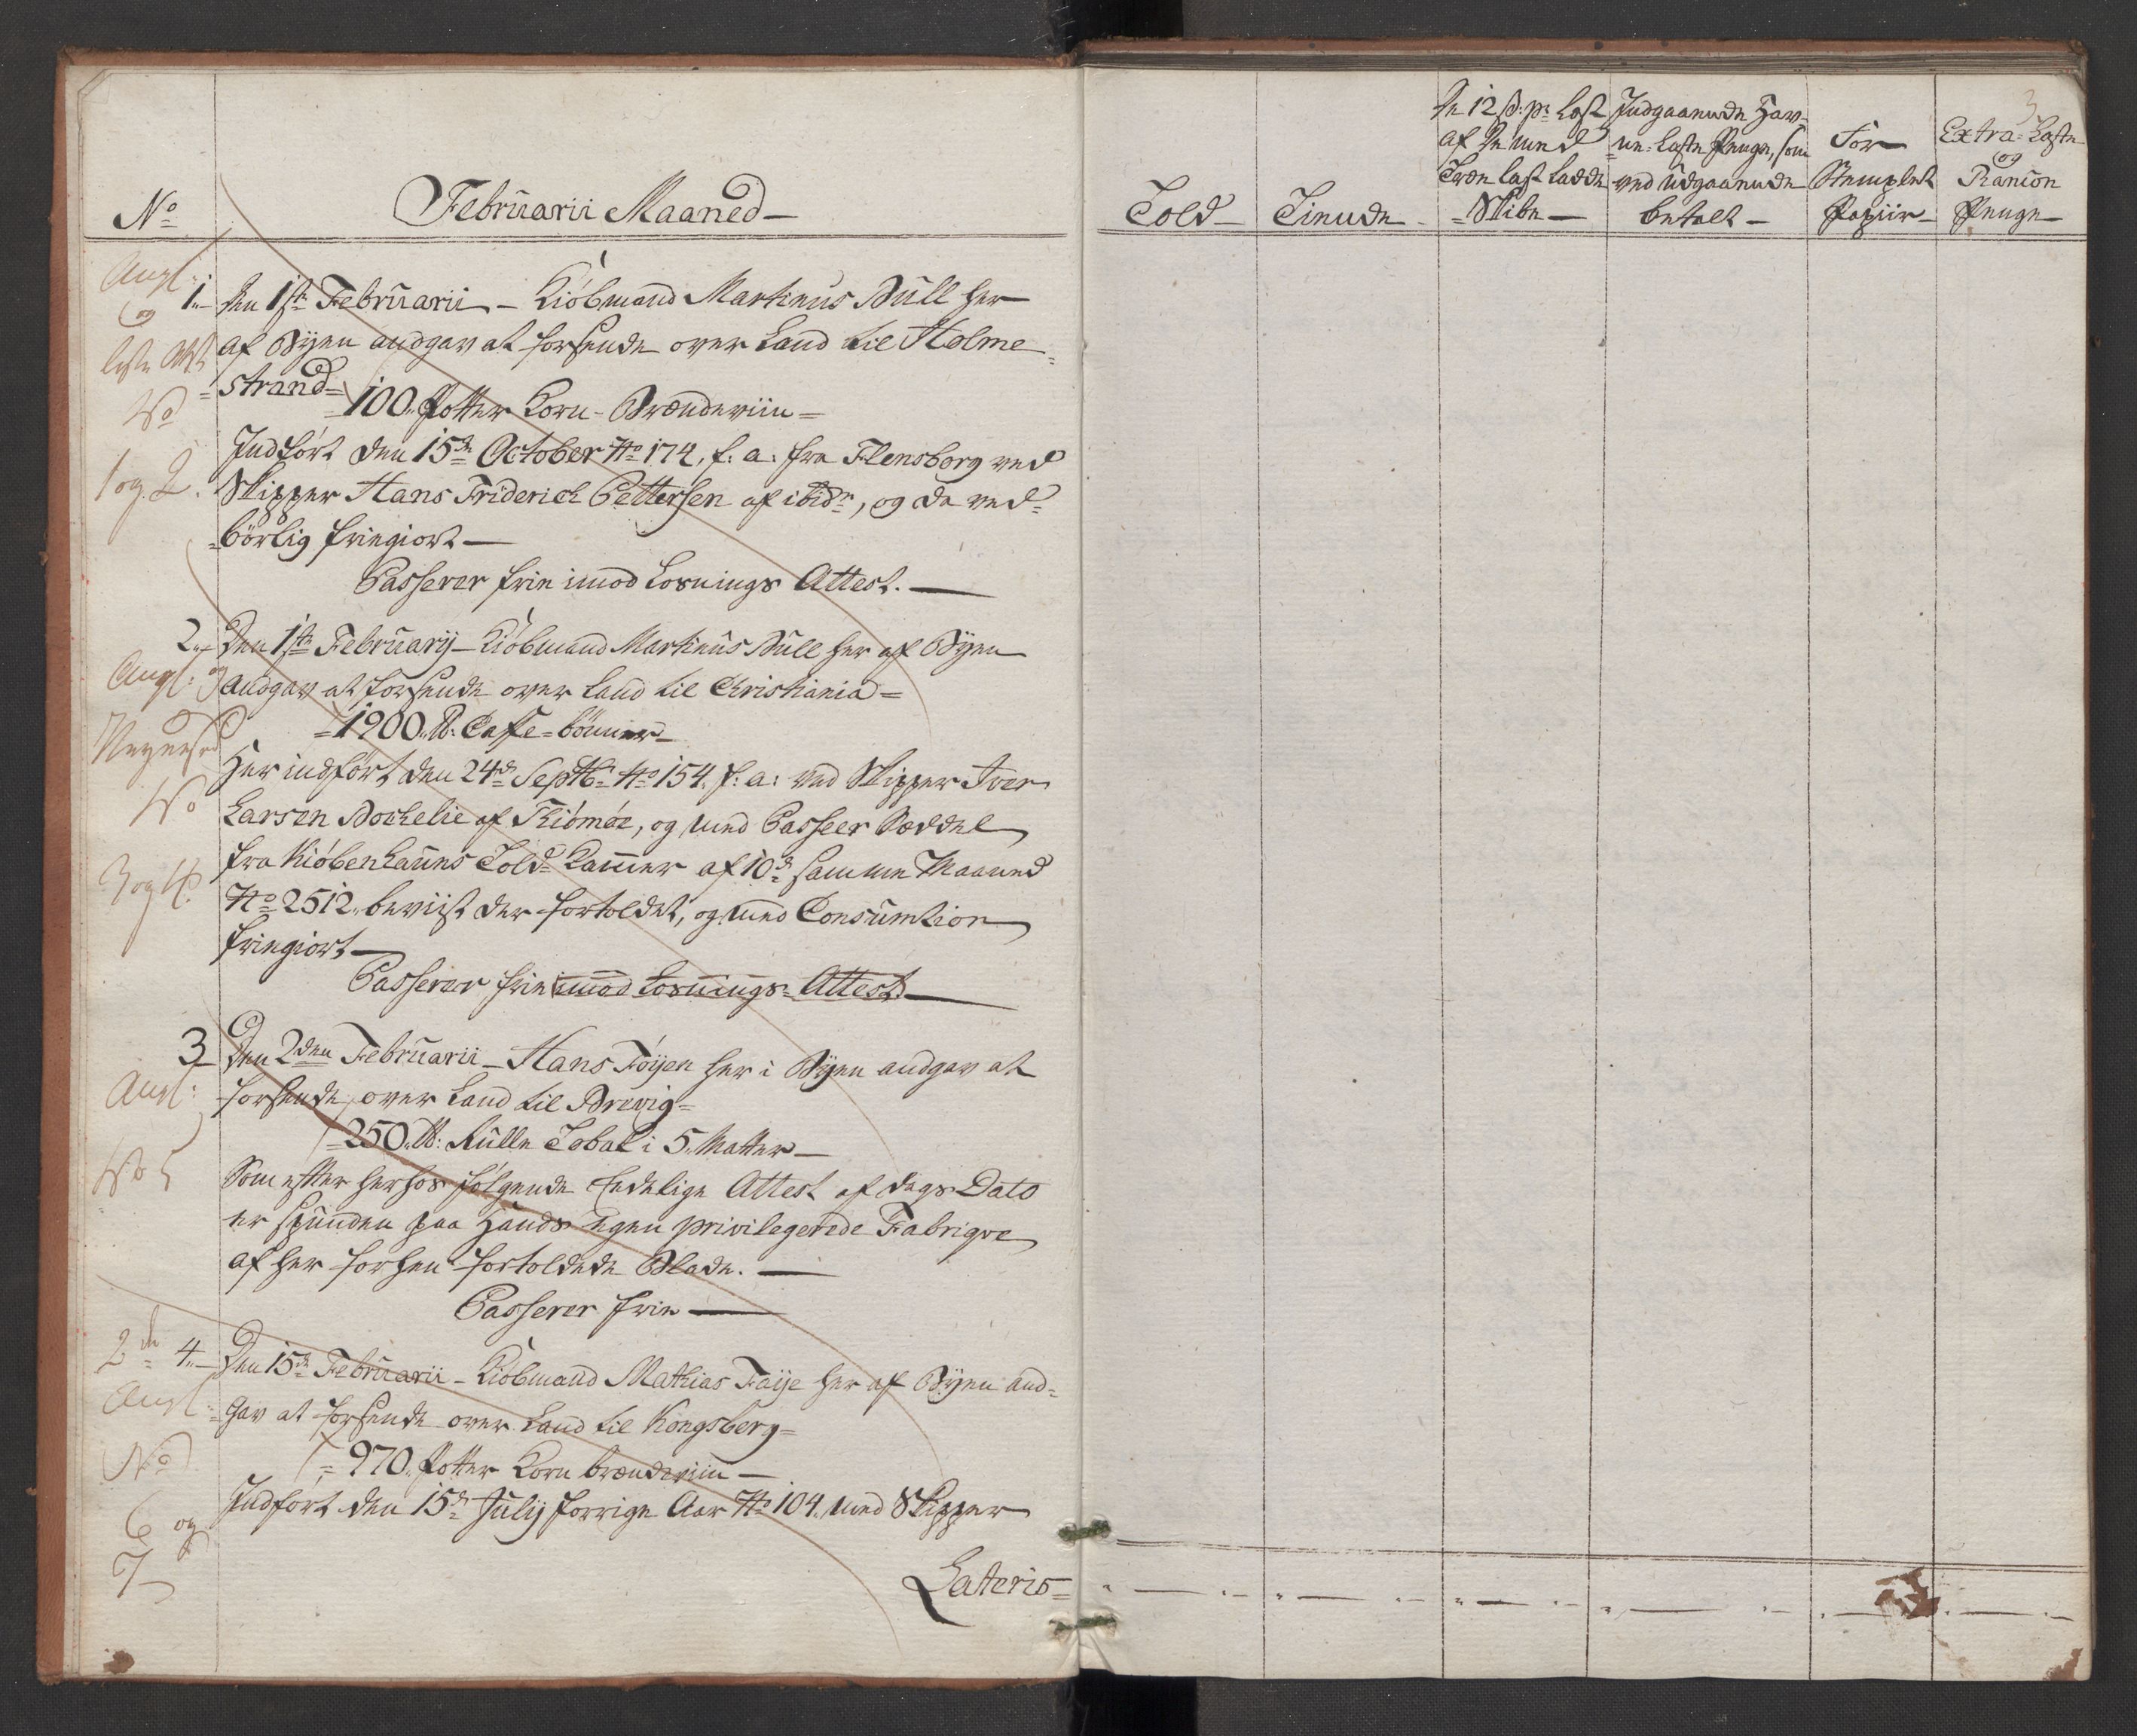 No
Februarii Maaned
Angl:
og
No
1 og 2.
1. Den 1ste Februarii - Kiöbmand Martinus Bull her
af Byen andgav at forsende over Land til Holme=
=strand=
=100. Potter Korn-Brændeviin=
Indfört den 15de October No 174. f: a: fra Flensborg ved
Skipper Hans Friderich Pettersen af ibidm, og da ved=
=börlig friegiort
Passerer frie imod Losnings Attest.
2. Den 1ste February - Kiöbmand Martinus Bull her af Byen
Angl: og
andgav at forsende over Land til Christiania=
=1900. lb: Caffe-bönner
No
3 og 4.
Her indfört den 24de Septbr No 154. f: a: ved Skipper Iver
Larsen Bockelie af Tiömöe, og med Passeer Sæddel
fra Kiöbenhauns Told-Kammer af 10de samme Maaned
No 2512. beviist der fortoldet, og med Consumtion
friegiort
Passerer frie imod Losnings-Attest
3 Den 2den Februarii - Hans Föyen her i Byen andgav at
Angl:
forsende over Land til Brevig=
=250. lb: Rulle Tobak i 5. Matter
No 5
Som efter herhos fölgende Eedelige Attest af dags Dato
er spunden paa Hands Egen privilegerede Fabrique
af her forhen fortoldede Blade.
Passerer frie
2de
4. Den 15de Februarii - Kiöbmand Mathias Faije her af Byen and=
Angl:
=gav at forsende over Land til Kongsberg=
=970. Potter Korn brændeviin
No
6 og
7
Indfört den 15de Julij forrige Aar No 104. med Skipper
Lateris=
3
Told
Tiende
De 12 s: pr Last
af de med
Træe last ladde
=Skibe
Indgaaende Hav=
=ne-Laste Penge, som
ved Udgaaende
betalt
For
Stemplet
Papiir
Extra-Laste
og
Rancon
Penge